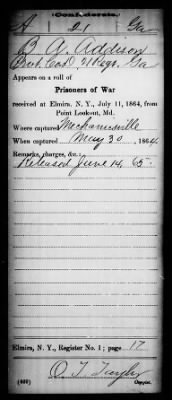 Confederate.
A 21 Ga
B. A. Addison
Regt. Ga
Appears on a roll of
Prisoners of War
received at Elmira, N. Y., July 11, 1864, from
Point Lookout, Md.
Where captured Mechanicsville
When captured May 30, 1864.
Remarks, charges, &c.:
Released June 14, 65
Elmira, N. Y., Register No. 1; page 17
Copyist.